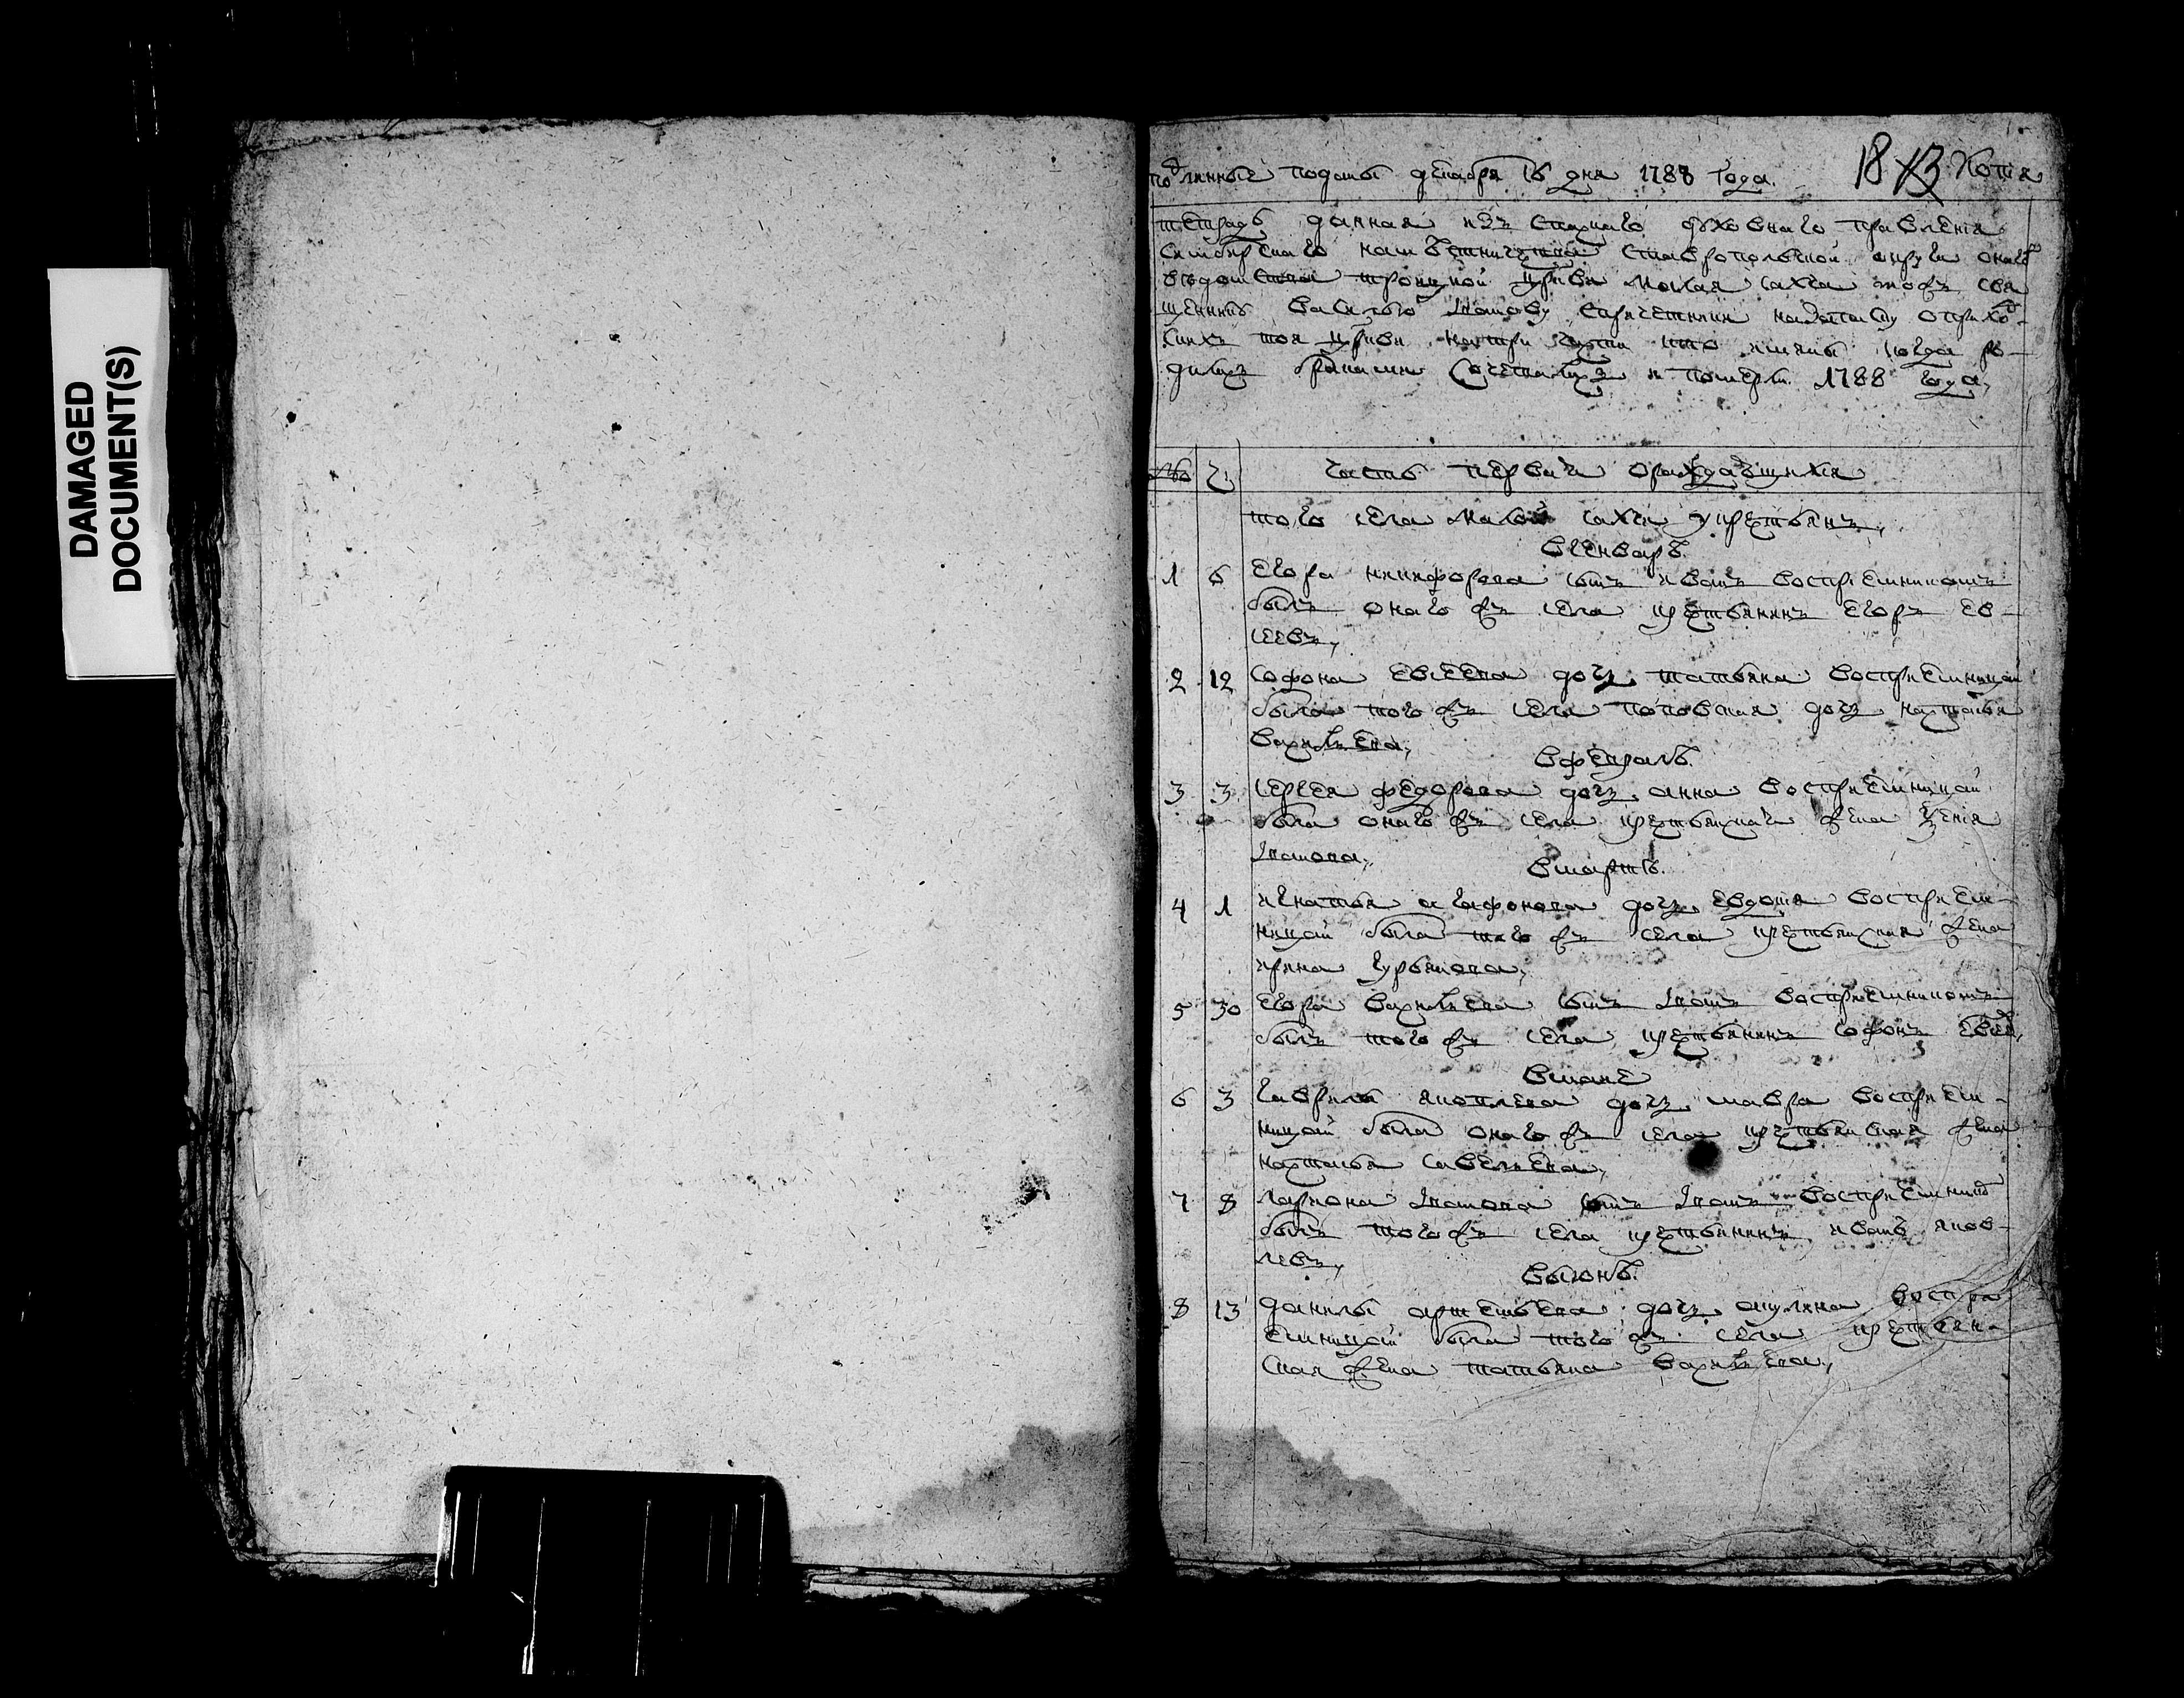 DAMAGED
DOCUMENT(S)
подлинные поданы декабря 16 дня 1788 года. 18 Копия
тетрадь данная из духовнаго правления
Симбирскаго наместничества Ставропольской округи онаго
ведомства троицкой церкви Малая тож свя
щеннику Василью спричетники на записку оприхо
цких тоя церкви на три части кто имяны когда ро
дилис браками сочеталис и померли 1788 года,
№ Ч. Часть первая ораждающихся
того села Малой у крестьян,
вгенваре
1 6 Егора никифорова сын иван восприемником
был онаго ж села крестьянин Егор Ев
сеев,
2 12 Софона Евсеева дочь татьяна восприемницей
была того ж села поповская дочь наталья
Васильева,
вфеврале
3 3 сергея федорова дочь анна восприемницей
была онаго ж села крестьянская жена
вмарте
4 1 игнатья агафонова дочь евдотия восприем
ницей была того ж села крестьянская жена
ирина гурьянова,
5 30 Егора Васильева сын восприемником
был того ж села крестьянин софон Евсее
вмаие
6 3 гаврилы яковлева дочь мавра восприем
ницей была онаго ж села крестьянская жена
наталья савельева,
7 8 лариона сын восприемник
был того ж села крестьянин иван яков
лев,
выюне
8 13 данилы артемьева дочь акулина воспри
емницей была того ж села крестьян
ская жена татьяна Васильева,